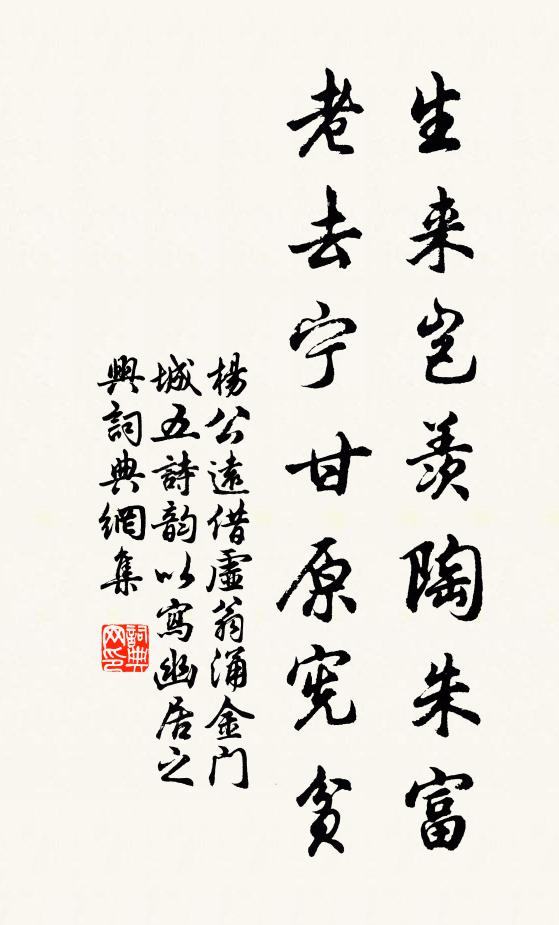 生来岂羡陶朱富
老去宁甘原宪贫
楊公遠借虛翁涌金门
城五詩韵以寫幽居之
興詞典網集
詞典
网印